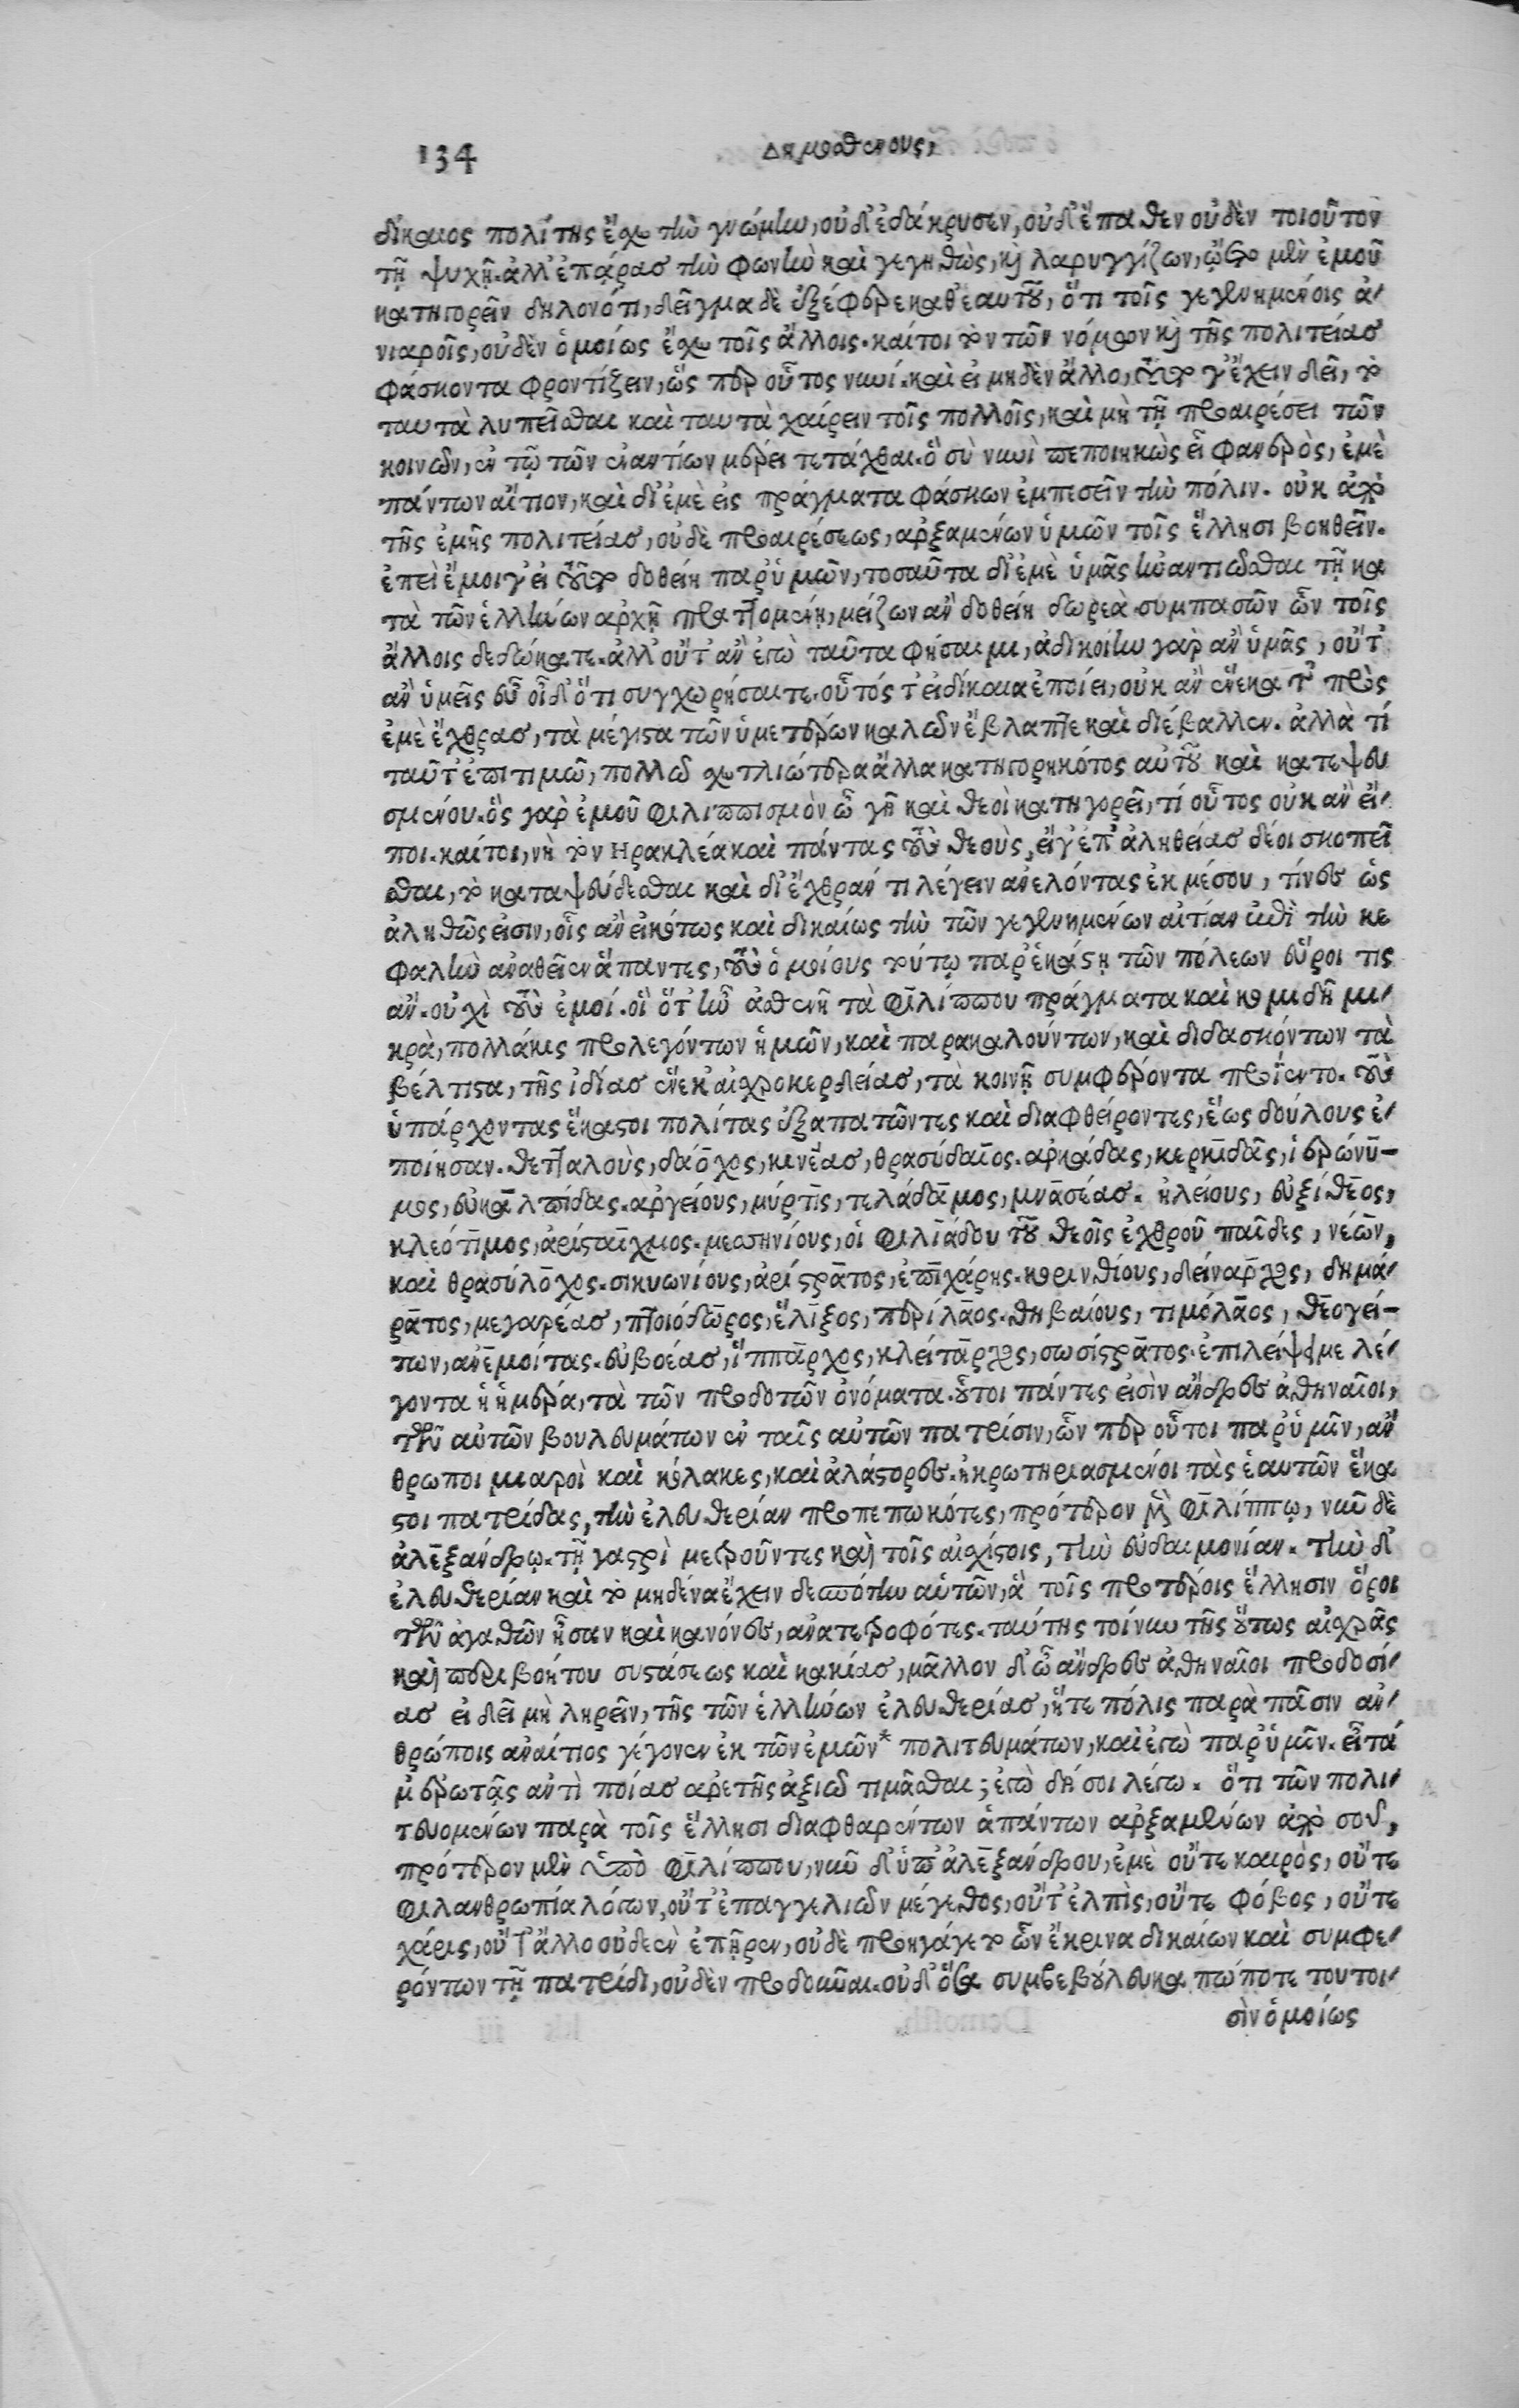 134 Δημοσθένους,
δίκαιος πολίτης ἔσχε τὴν γνώμην, οὐδ' ἐδάκρυσεν, οὐδ' ἔπαθεν οὐδὲν τοιοῦτον
τῇ ψυχῇ. ἀλλ' ἐπάρας τὴν φωνὴν καὶ γεγηθὼς, καὶ λαρυγγίζων, ᾤετο μὲν ἐμοῦ
κατηγορεῖν δηλονότι, δεῖγμα δὲ ἐξέφερε καθ' ἑαυτοῦ, ὅτι τοῖς γεγενημένοις ἀ-
νιαροῖς, οὐδὲν ὁμοίως ἔσχε τοῖς ἄλλοις. καίτοι τὸν τῶν νόμων καὶ τῆς πολιτείας
φάσκοντα φροντίζειν, ὥς περ οὗτος νυνί. καὶ εἰ μηδὲν ἄλλο, τοῦτο γ' ἔχειν δεῖ, τὸ
ταυτὰ λυπεῖσθαι καὶ ταυτὰ χαίρειν τοῖς πολλοῖς, καὶ μὴ τῇ προαιρέσει τῶν
κοινῶν, ἐν τῷ τῶν ἐναντίων μέρει τετάχθαι. ὃ σὺ νυνὶ πεποιηκὼς εἶ φανερὸς, ἐμὲ
πάντων αἴτιον, καὶ δι' ἐμὲ εἰς πράγματα φάσκων ἐμπεσεῖν τὴν πόλιν. οὐκ ἀπὸ
τῆς ἐμῆς πολιτείας, οὐδὲ προαιρέσεως, ἀρξαμένων ὑμῶν τοῖς ἕλλησι βοηθεῖν.
ἐπεὶ ἔμοιγ' εἰ τοῦτο δοθείη παρ' ὑμῶν, τοσαῦτα δι' ἐμὲ ὑμᾶς ἠναντιῶσθαι τῇ κα
τὰ τῶν ἑλλήνων ἀρχῇ πραττομένῃ, μείζων ἂν δοθείη δωρεὰ συμπασῶν ὧν τοῖς
ἄλλοις δεδώκατε. ἀλλ' οὔτ' ἂν ἐγὼ ταῦτα φήσαιμι, ἀδικοίην γὰρ ἂν ὑμᾶς, οὔτ'
ἂν ὑμεῖς εὖ οἶδ' ὅτι συγχωρήσαιτε. οὗτός τ' εἰ δίκαια ἐποίει, οὐκ ἂν ἕνεκα τῆς πρὸς
ἐμὲ ἔχθρας, τὰ μέγιστα τῶν ὑμετέρων καλῶν ἔβλαπτε καὶ διέβαλλεν. ἀλλὰ τί
ταῦτ' ἐπιτιμῶ, πολλῷ σχετλιώτερα ἄλλα κατηγορηκότος αὐτοῦ καὶ κατεψευ
σμένου. ὃς γὰρ ἐμοῦ φιλιππισμὸν ὦ γῆ καὶ θεοὶ κατηγορεῖ, τί οὗτος οὐκ ἂν εἴ-
ποι. καίτοι, νὴ τὸν Ηρακλέα καὶ πάντας τοὺς θεοὺς, εἴ γ' ἐπ' ἀληθείας δέοι σκοπεῖ
σθαι, τὸ καταψεύδεσθαι καὶ δι' ἔχθραν τι λέγειν ἀνελόντας ἐκ μέσου, τίνες ὡς
ἀληθῶς εἰσιν, οἷς ἂν εἰκότως καὶ δικαίως τὴν τῶν γεγενημένων αἰτίαν ἐπὶ τὴν κε
φαλὴν ἀναθεῖεν ἅπαντες, τοὺς ὁμοίους τούτῳ παρ' ἑκάστῃ τῶν πόλεων εὕροι τις
ἄν. οὐχὶ τοὺς ἐμοί. οἳ ὅτ' ἦν ἀσθενῆ τὰ φιλίππου πράγματα καὶ κομιδῇ μι-
κρὰ, πολλάκις προλεγόντων ἡμῶν, καὶ παρακαλούντων, καὶ διδασκόντων τὰ
βέλτιστα, τῆς ἰδίας ἕνεκ' αἰσχροκερδείας, τὰ κοινῇ συμφέροντα προΐεντο. τοὺς
ὑπάρχοντας ἕκαστοι πολίτας ἐξαπατῶντες καὶ διαφθείροντες, ἕως δούλους ἐ-
ποίησαν. θετταλοὺς, δάοχος, κινέας, θρασύδαιος. ἀρκάδας, κερκιδᾶς, ἱερώνυ-
μος, εὐκαλπίδας. ἀργείους, μύρτις, τελάδαμος, μνασέας. ἠλείους, εὐξίθεος,
κλεότιμος, ἀρίσταιχμος. μεσσηνίους, οἱ φιλιάδου τοῦ θεοῖς ἐχθροῦ παῖδες, νέων,
καὶ θρασύλοχος. σικυωνίους, ἀρίστρατος, ἐπιχάρης. κορινθίους, δείναρχος, δημά-
ρατος, μεγαρέας, πτοιόδωρος, ἕλιξος, περίλαος. θηβαίους, τιμόλαος, θεογεί-
των, ἀνεμοίτας. εὐβοέας, ἵππαρχος, κλείταρχος, σωσίστρατος. ἐπιλείψει με λέ-
γοντα ἡ ἡμέρα, τὰ τῶν προδοτῶν ὀνόματα. οὗτοι πάντες εἰσὶν ἄνδρες ἀθηναῖοι,
τῶν αὐτῶν βουλευμάτων ἐν ταῖς αὐτῶν πατρίσιν, ὧν περ οὗτοι παρ' ὑμῖν, ἄν
θρωποι μιαροὶ καὶ κόλακες, καὶ ἀλάστορες. ἠκρωτηριασμένοι τὰς ἑαυτῶν ἕκα
στοι πατρίδας, τὴν ἐλευθερίαν προπεπωκότες, πρότερον μὲν φιλίππῳ, νῦν δὲ
ἀλεξάνδρῳ. τῇ γαστρὶ μετροῦντες καὶ τοῖς αἰσχίστοις, τὴν εὐδαιμονίαν. τὴν δ'
ἐλευθερίαν καὶ τὸ μηδένα ἔχειν δεσπότην αὑτῶν, ἃ τοῖς προτέροις ἕλλησιν ὅροι
τῶν ἀγαθῶν ἦσαν καὶ κανόνες, ἀνατετροφότες. ταύτης τοίνυν τῆς οὕτως αἰσχρᾶς
καὶ περιβοήτου συστάσεως καὶ κακίας, μᾶλλον δ' ὦ ἄνδρες ἀθηναῖοι προδοσί-
ας εἰ δεῖ μὴ ληρεῖν, τῆς τῶν ἑλλήνων ἐλευθερίας, ἥ τε πόλις παρὰ πᾶσιν ἀν-
θρώποις ἀναίτιος γέγονεν ἐκ τῶν ἐμῶν* πολιτευμάτων, καὶ ἐγὼ παρ' ὑμῖν. εἶτά
μ' ἐρωτᾷς ἀντὶ ποίας ἀρετῆς ἀξιῶ τιμᾶσθαι; ἐγὼ δή σοι λέγω. ὅτι τῶν πολι-
τευομένων παρὰ τοῖς ἕλλησι διαφθαρέντων ἁπάντων ἀρξαμένων ἀπὸ σοῦ,
πρότερον μὲν ὑπὸ φιλίππου, νῦν δ' ὑπ' ἀλεξάνδρου, ἐμὲ οὔτε καιρὸς, οὔτε
φιλανθρωπία λόγων, οὔτ' ἐπαγγελιῶν μέγεθος, οὔτ' ἐλπὶς, οὔτε φόβος, οὔτε
χάρις, οὔτ' ἄλλο οὐδὲν ἐπῇρεν, οὐδὲ προηγάγετο ὧν ἔκρινα δικαίων καὶ συμφε-
ρόντων τῇ πατρίδι, οὐδὲν προδοῦναι. οὐδ' ὅσα συμβεβούλευκα πώποτε τουτοι-
σὶν ὁμοίως